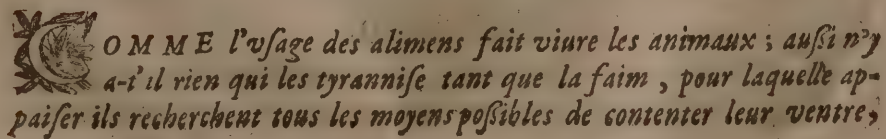 COMME l'vſage des alimens fait viure les animaux ; auſſi n'y
a-t'il rien qui les tyranniſe tant que la faim , pour laquelle ap-
paiſer ils recherchent tous les moyens poſſibles de contenter leur ventre,